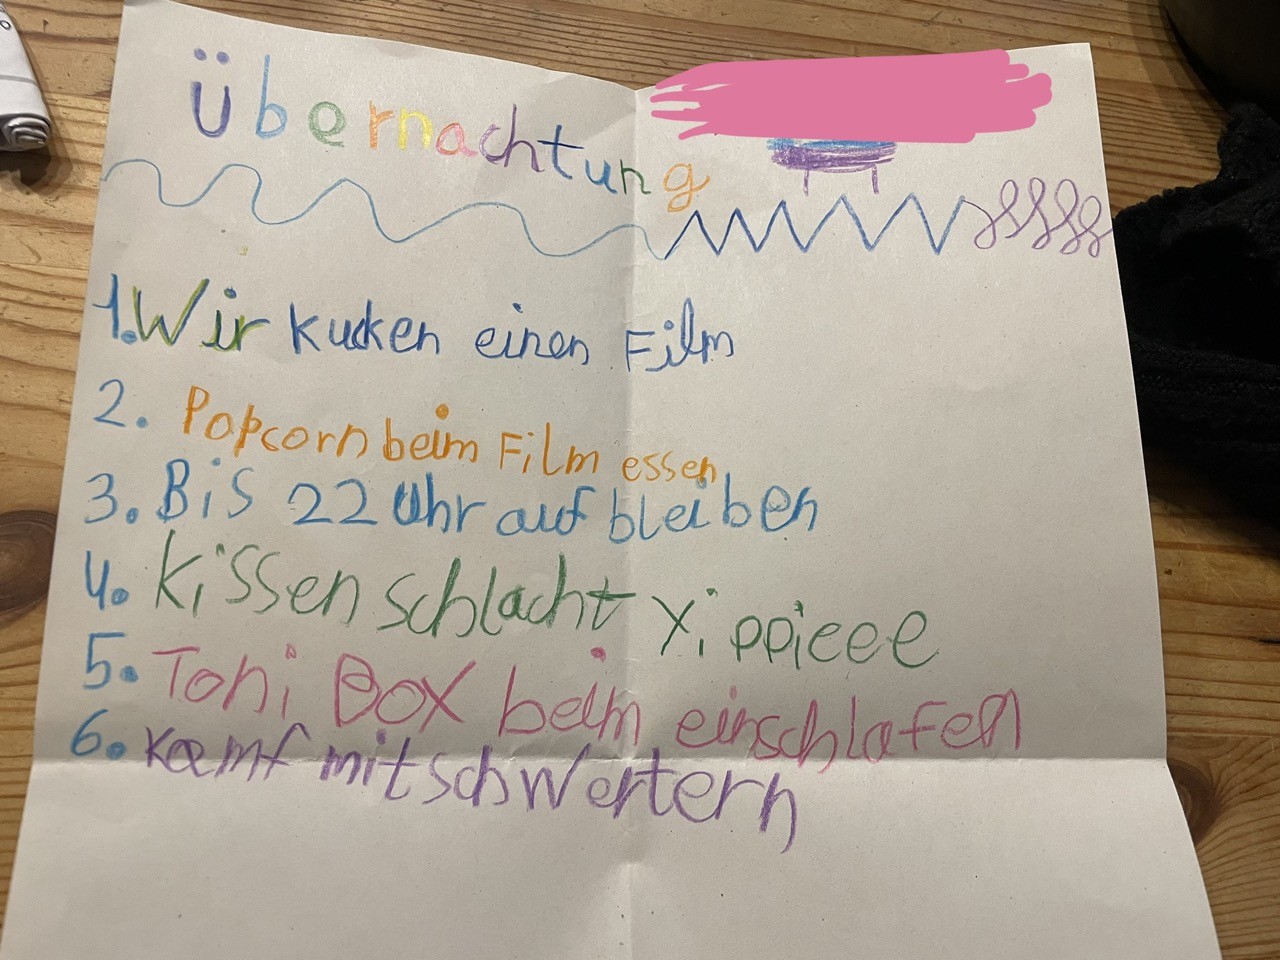 Übernachtung
1. Wir kucken einen Film
2. Popcorn beim Film essen
3. Bis 22 Uhr auf bleiben
4. Kissen schlacht Yippieee
5. Toni Box beim einschlafen
6. Kamf mit schwertern